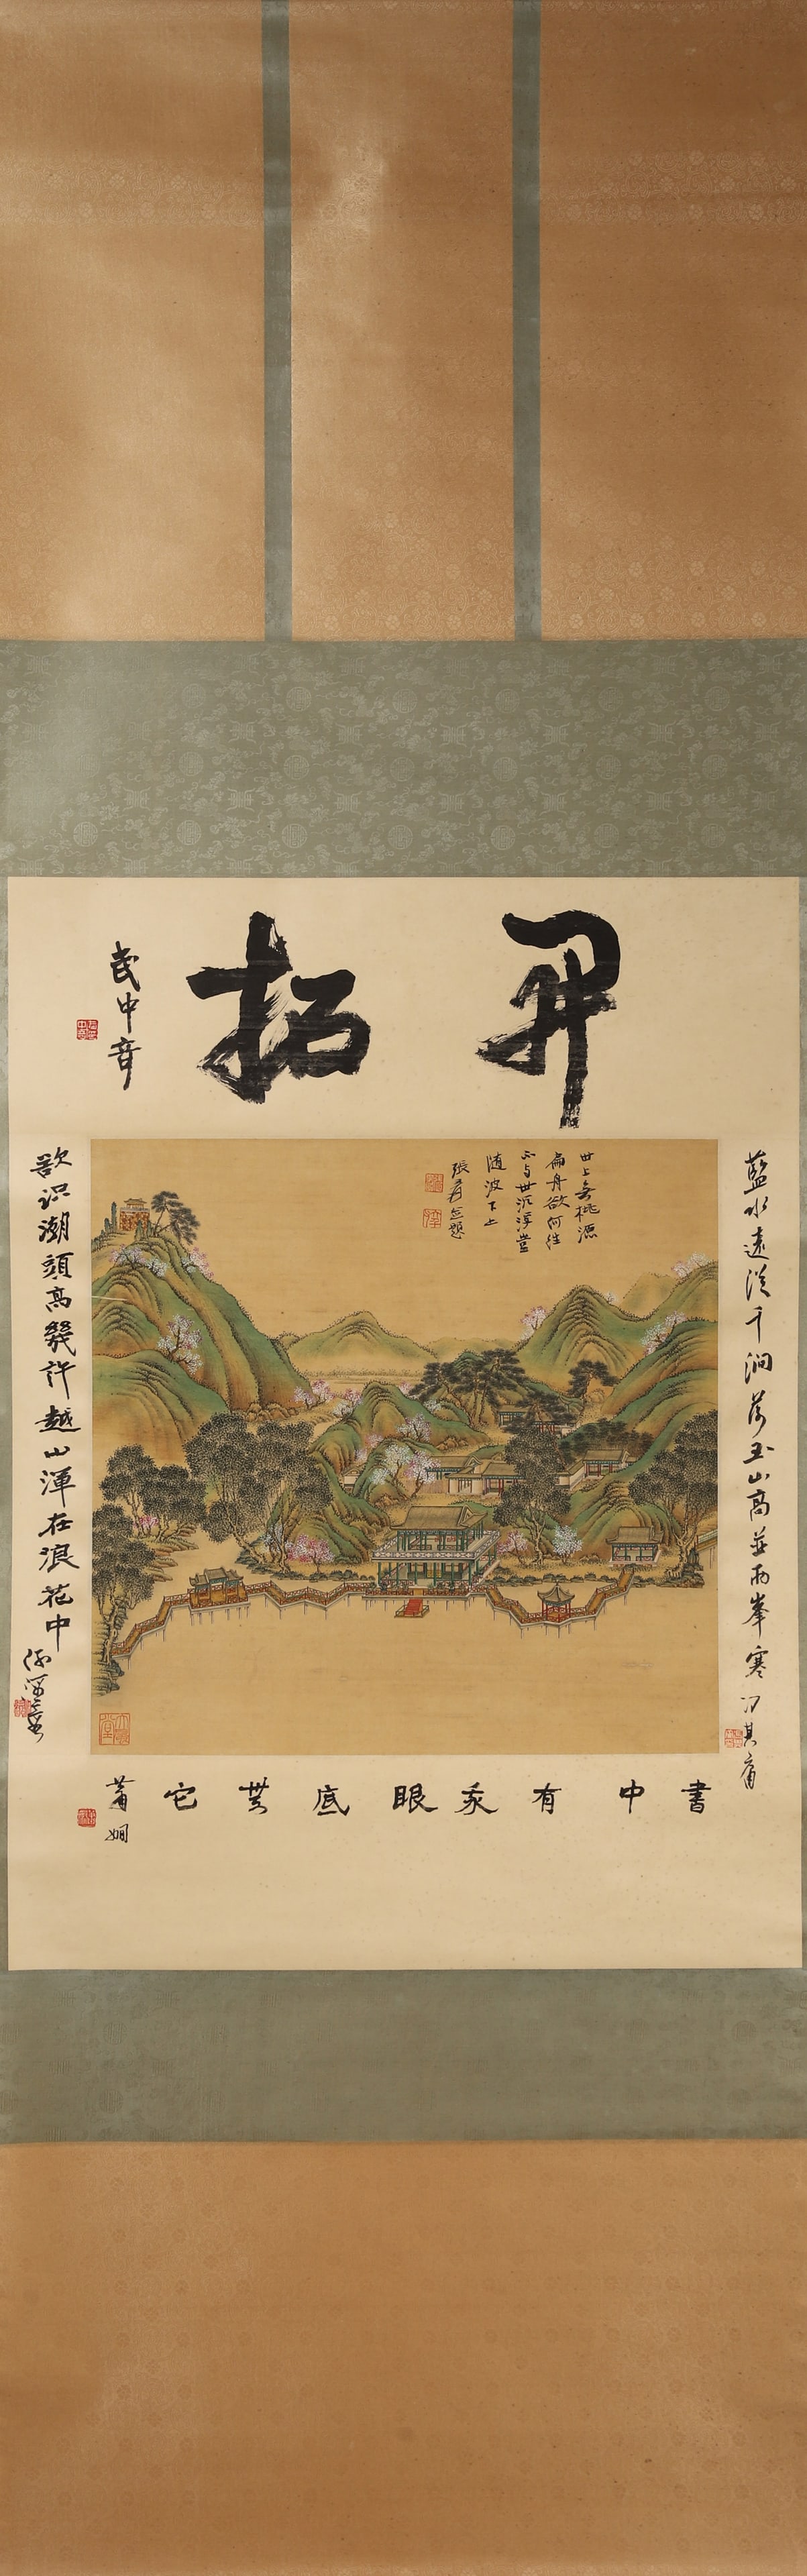 開拓
武中奇
世上無桃源
扁舟欲何往
不与世沉浮豈
随波下上
張爰並題
藍水遠從千澗落玉山高並兩峯寒 馮其庸
欲识潮頭高幾許越山渾在浪花中
書中有 眼底無它
蕭嫻